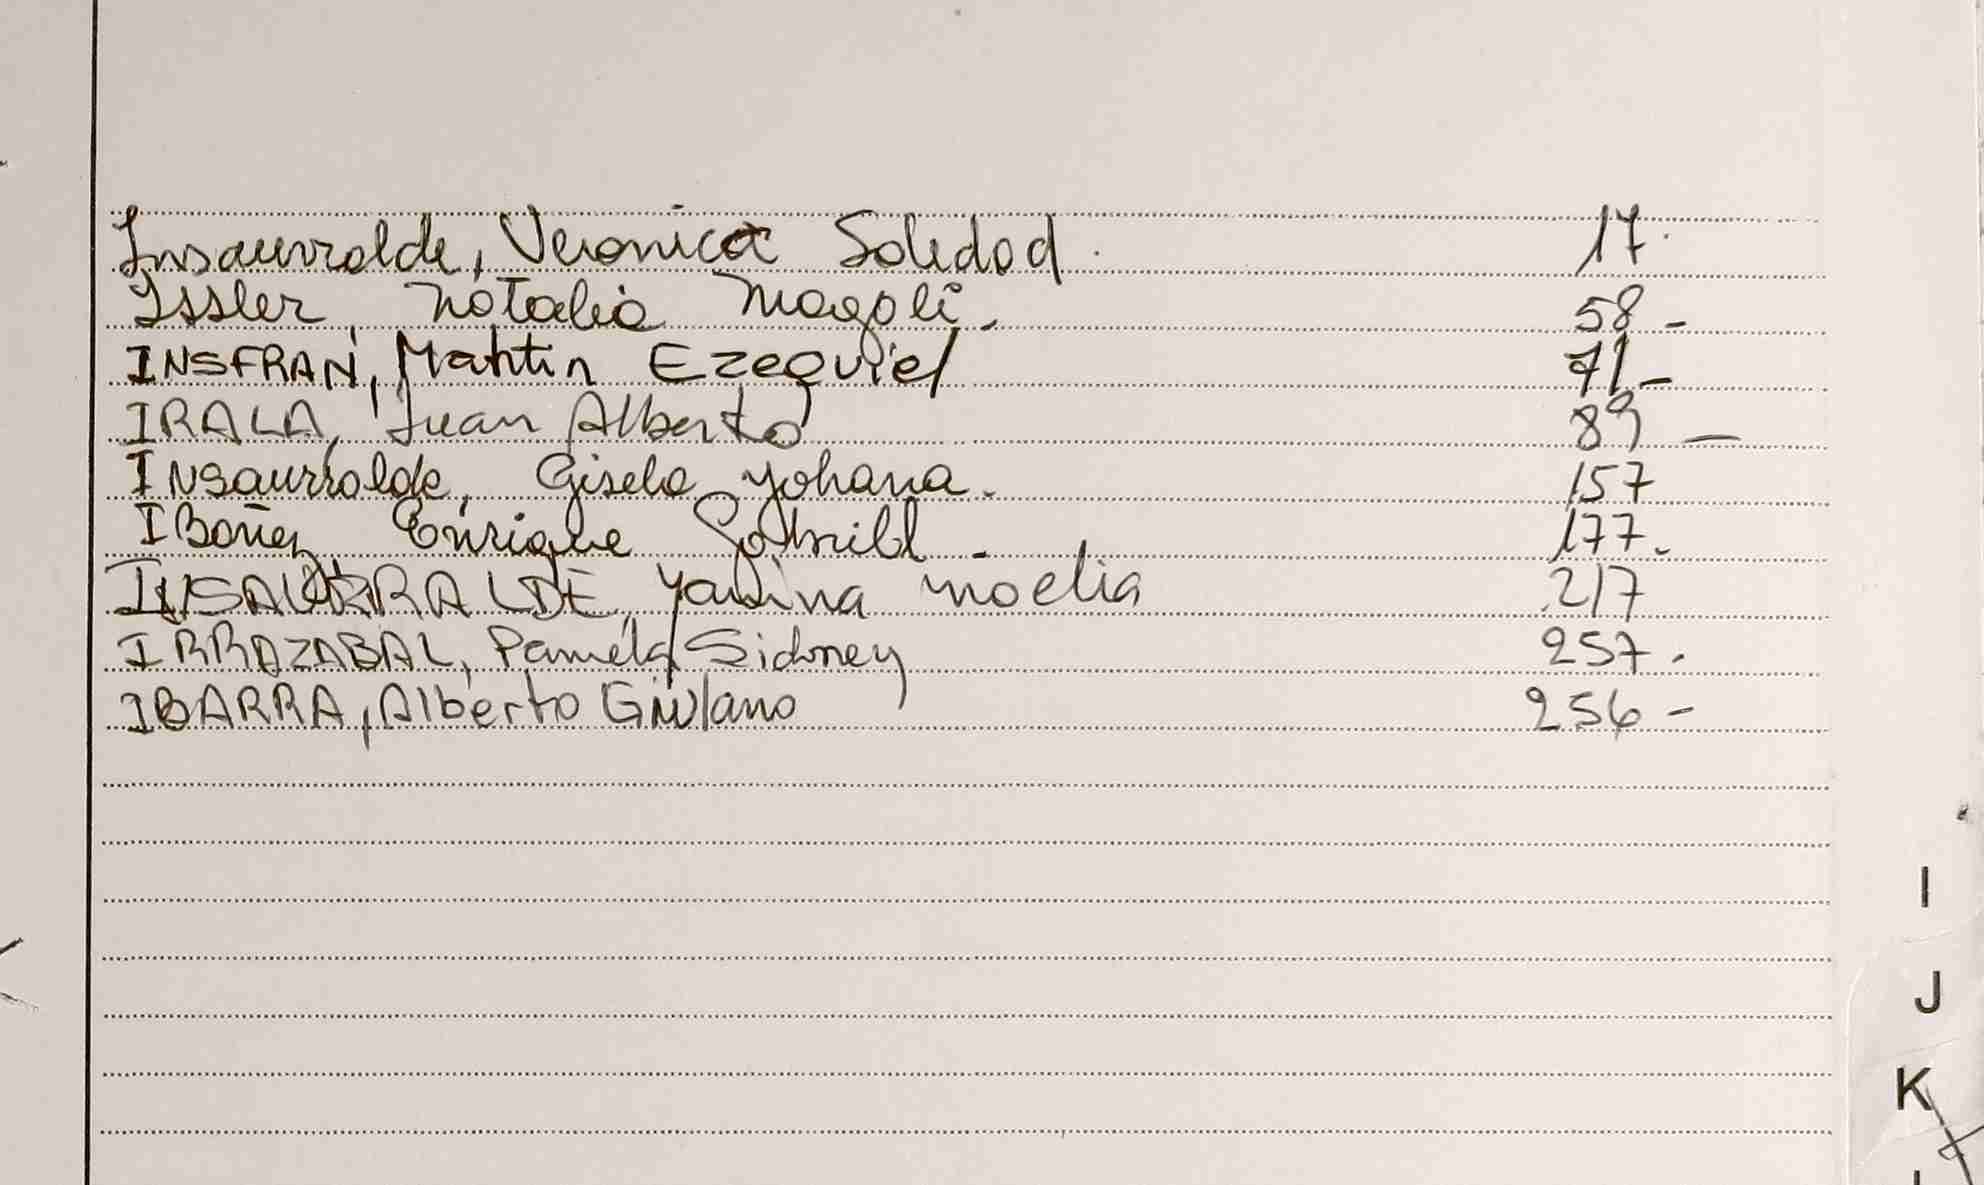 Insaurralde, Veronica Soledad. 17.
Issler, Natalia Magali. 58-
INSFRAN, Martin Ezequiel 71-
IRALA, Juan Alberto 89 —
Insaurralde, Gisela Yohana. 157
Ibañez Enrique - 177.
INSAURRALDE, Yanina Noelia 217
IRRAZABAL, Pamela Sidney 257.
IBARRA, Alberto Giuliano 256-
I
J
K